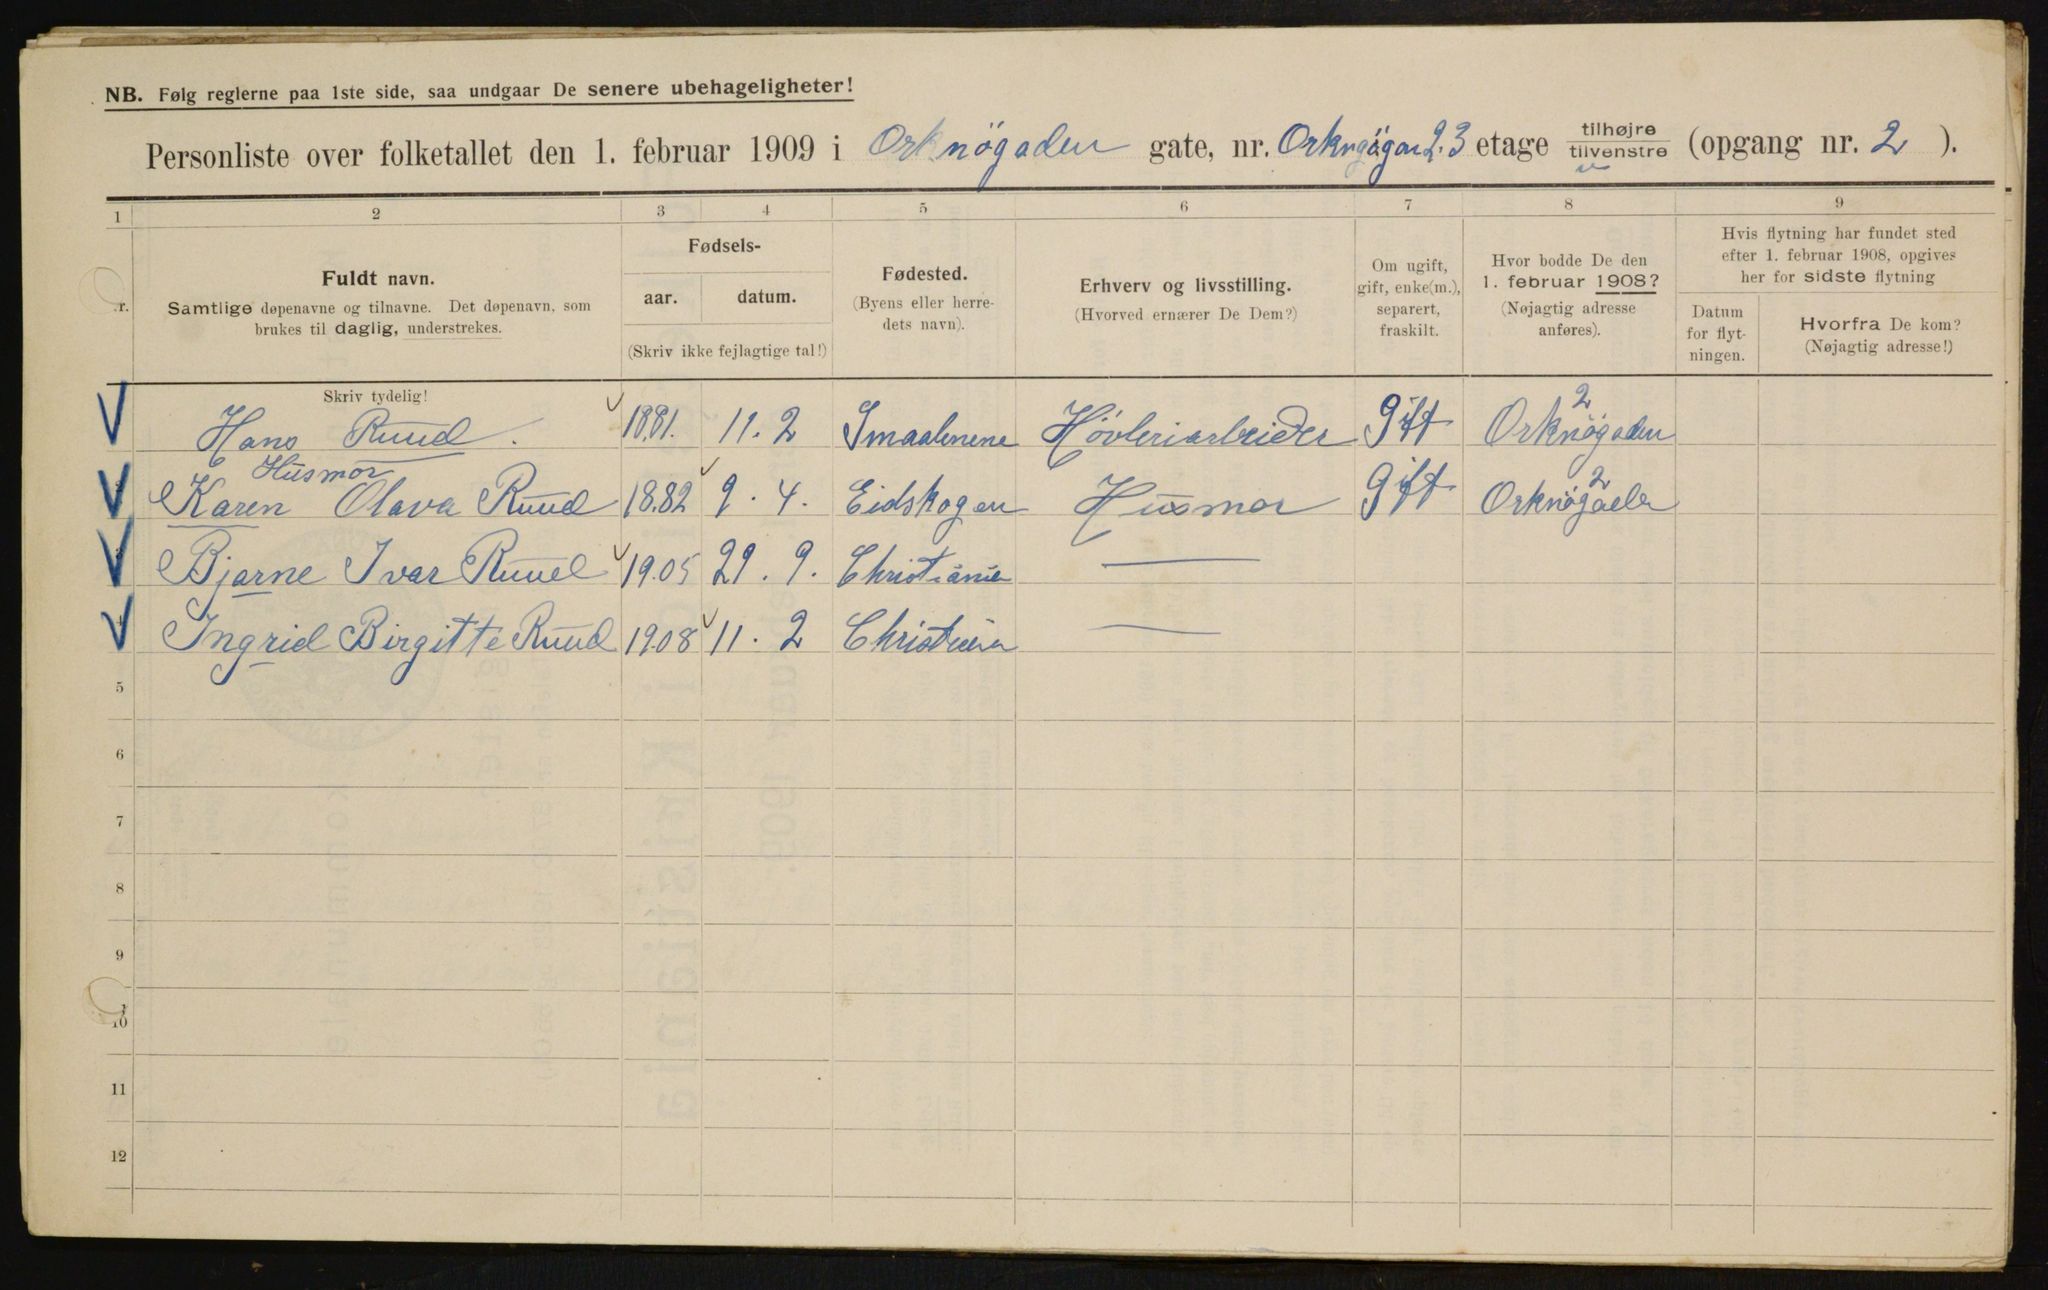 NB. Følg reglerne paa 1ste side, saa undgaar De senere ubehageligheter!
Personliste over folketallet den 1. februar 1909 i Orknögaden gate, nr. Orknögaen 2. 3 etage tilhøjre / tilvenstre (opgang nr. 2 ).
1 2 3 4 5 6 7 8 9
r. Fuldt navn. Samtlige døpenavne og tilnavne. Det døpenavn, som brukes til daglig, understrekes.
Fødsels-
aar. datum.
(Skriv ikke fejlagtige tal!)
Fødested. (Byens eller herredets navn).
Erhverv og livsstilling. (Hvorved ernærer De Dem?)
Om ugift, gift, enke(m.), separert, fraskilt.
Hvor bodde De den 1. februar 1908? (Nøjagtig adresse anføres).
Hvis flytning har fundet sted efter 1. februar 1908, opgives her for sidste flytning
Datum for flytningen.
Hvorfra De kom? (Nøjagtig adresse!)
Skriv tydelig!
Hans Ruud. 1881. 11. 2 Smaalenene Høvleriarbeider Gift Orknögaden 2
Husmor
2 Karen Olava Ruud 1882 9. 4. Eidskogen Husmor Gift Orknögaden 2
3 Bjarne Ivar Ruud 19.05 29. 9. Christiania —
4 Ingrid Birgitte Ruud 19.08 11. 2 Christiania —
5
6
7
8
9
10
11
12